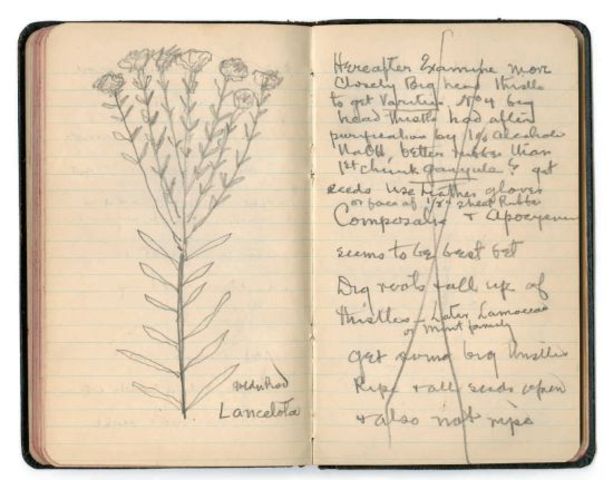 goldenrod
Lanceolota
Hereafter Examine more
Closely Big head thistle
to get Varieties. No 4 big
head thistle had after
purification by 1% Alcoholic
NaOH, better rubber than
1st chunk guayule & get
seeds Use Leather gloves
or face of 1/32 sheet Rubber
Compositae & Apocyenum
seems to be best bet
Dig roots & all up of
thistles Later Lamoceae
or Mint family
get some big thistles
Ripe & all seeds open
& also not ripe